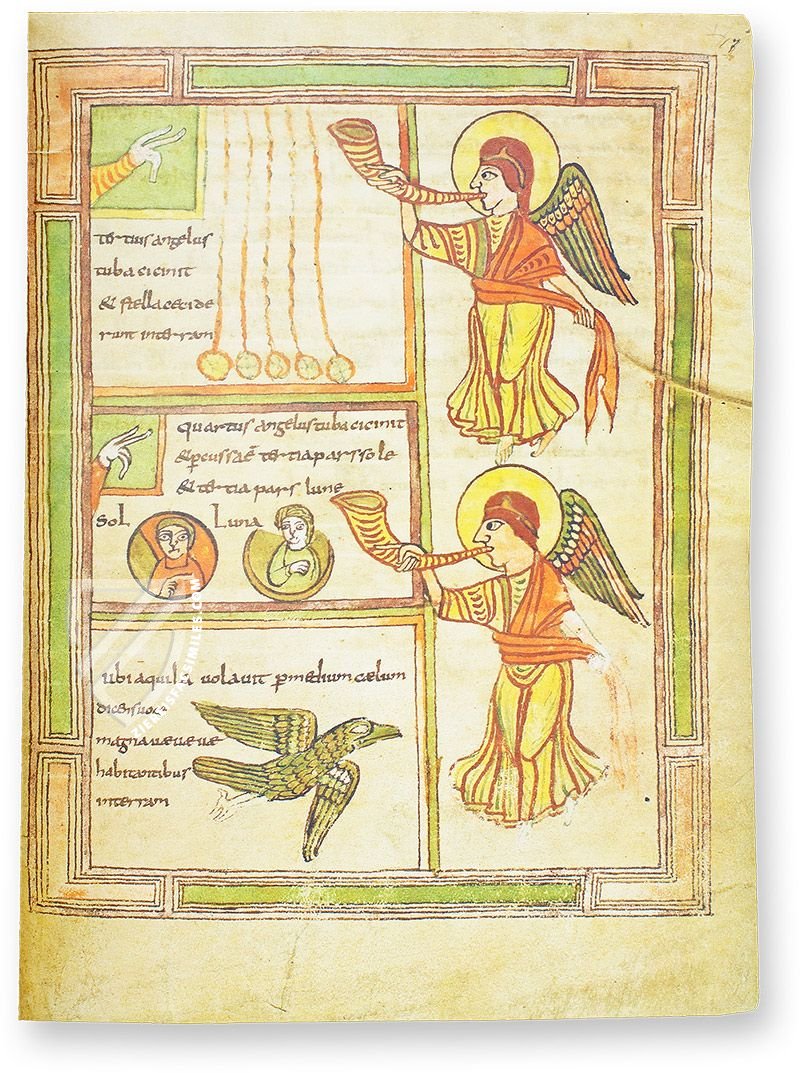 tertius angelus
tuba cicinit
& stella cecide
runt in terram
quartus angelus tuba cicinit
& percussa ē tertia pars sole
& tertia pars lune
Sol Luna
ubi aquila volavit per medium cælum
dicens voce
magna væ væ væ
habitantibus
in terram
ZIEREIS FACSIMILES.COM